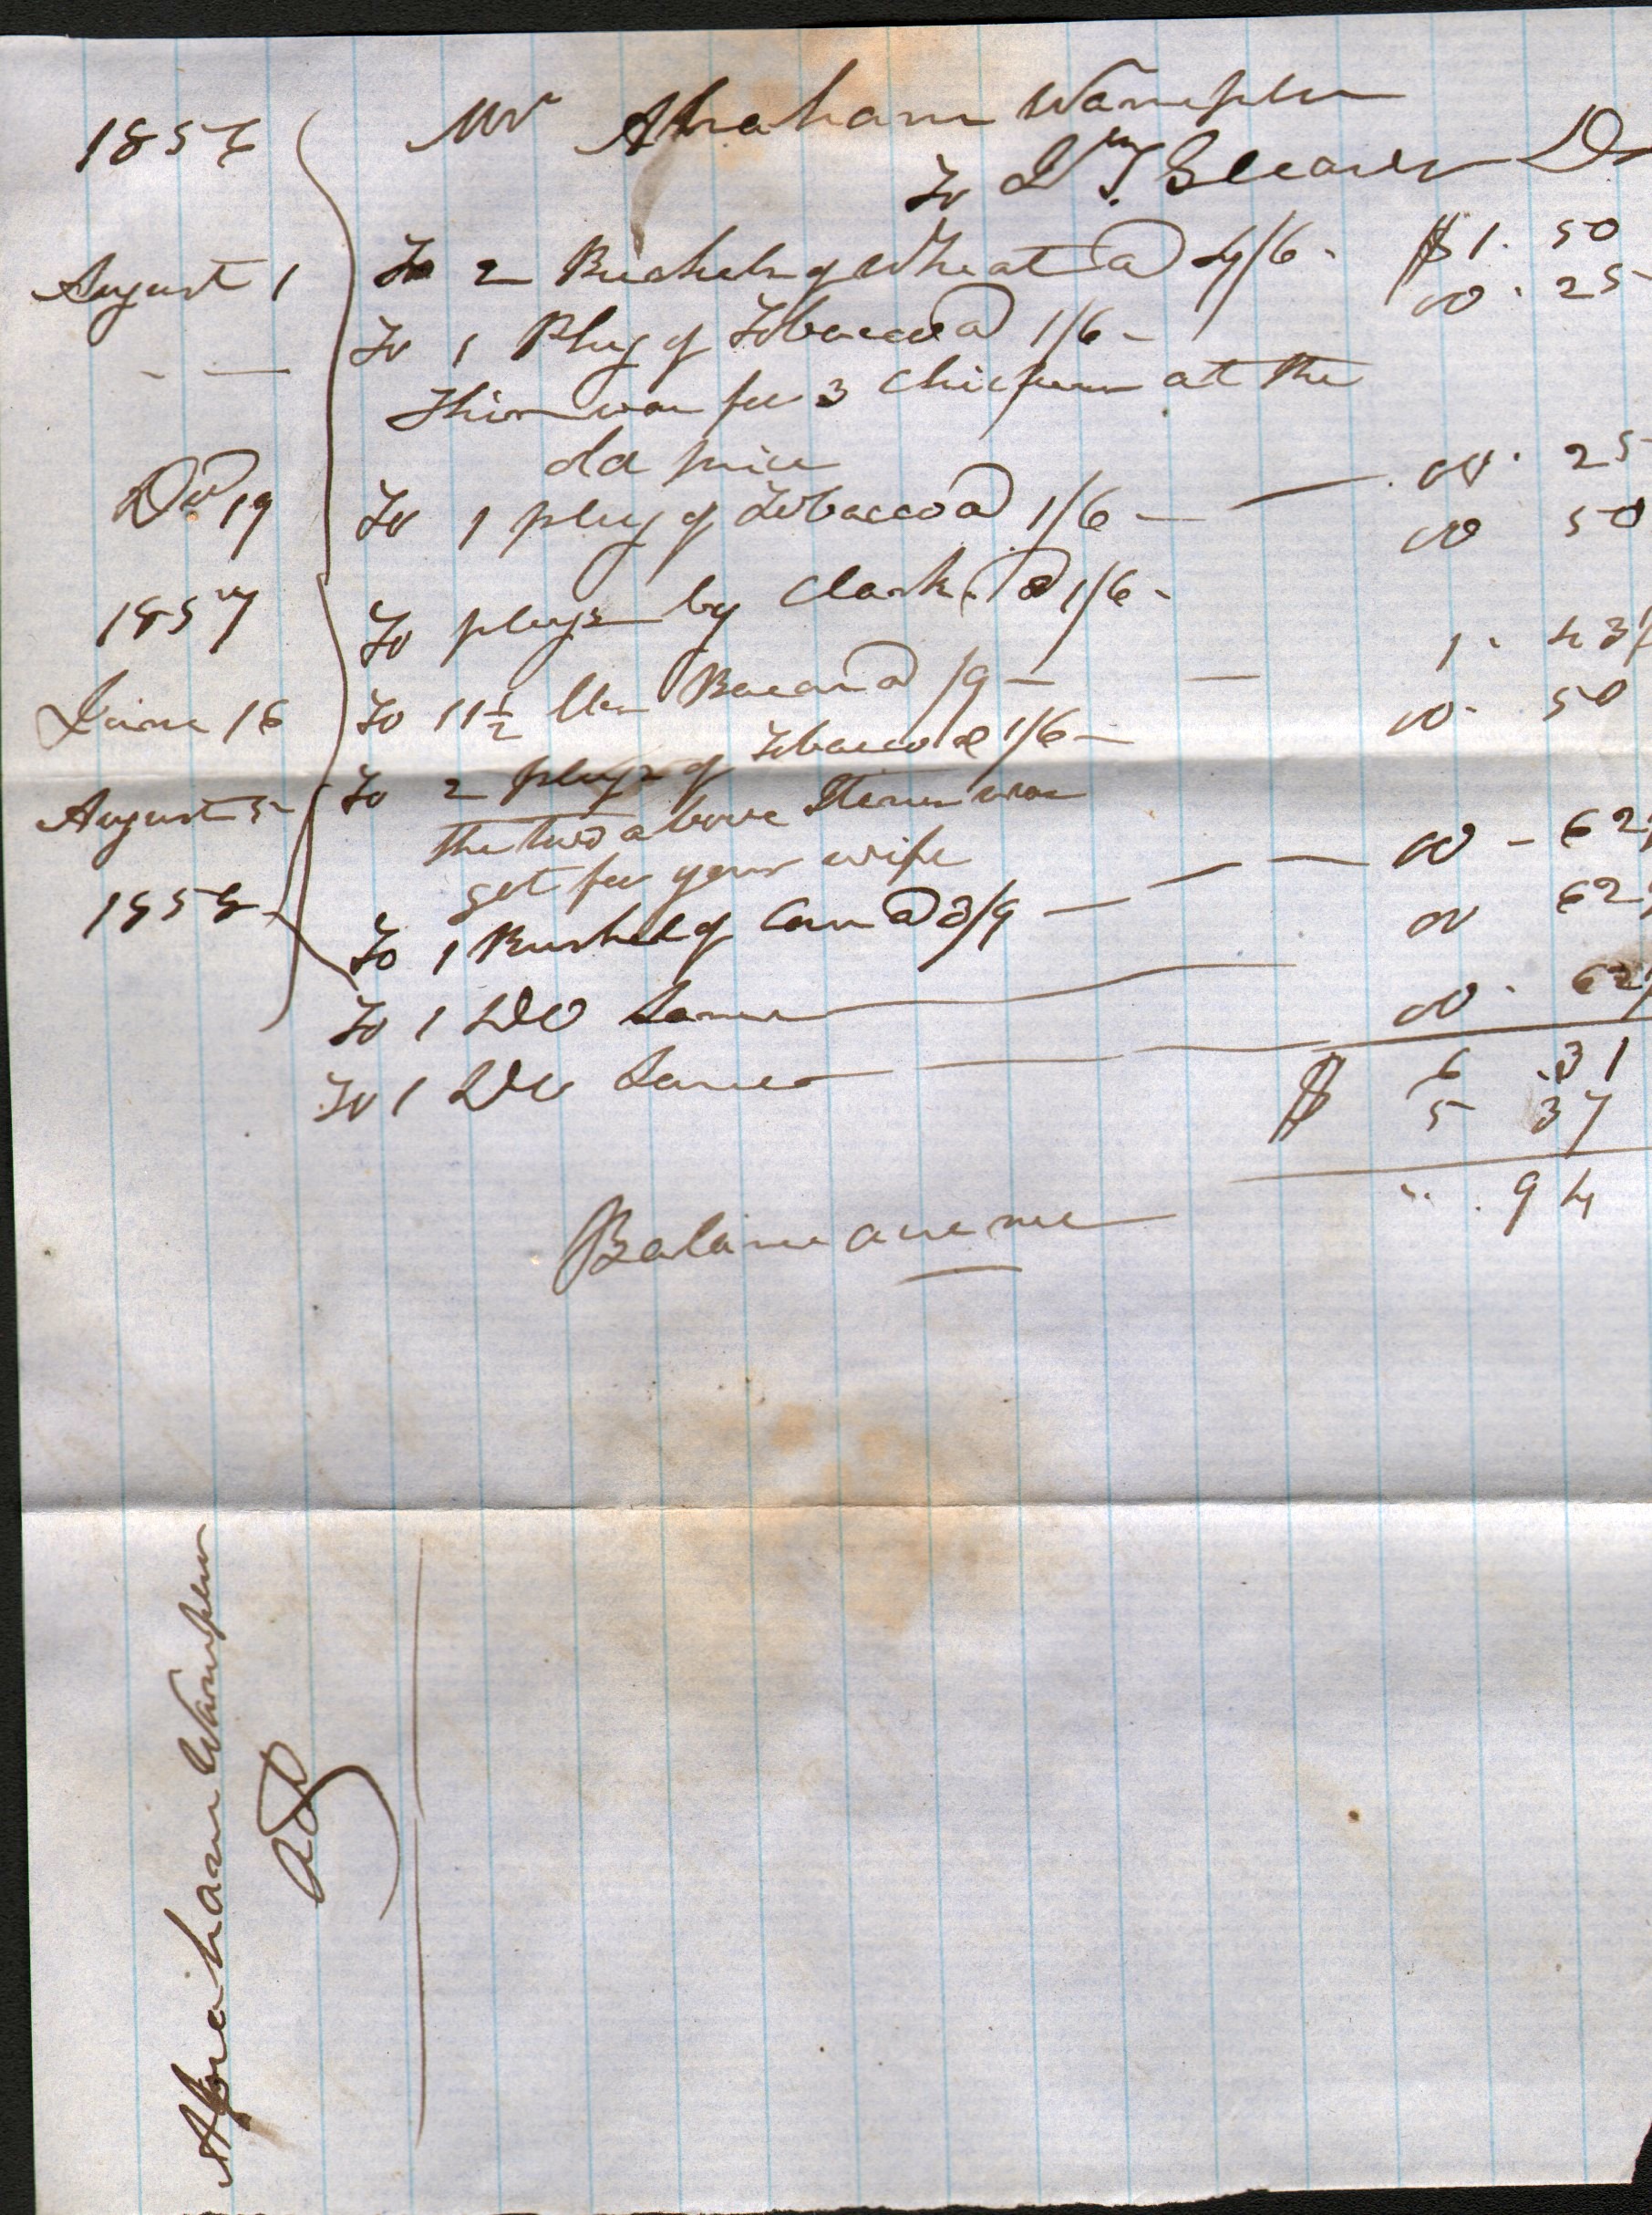 1856 Mr Abraham Wampler
To Wm T. Dr
August 1 To 2 Bushels of Wheat @ 4/6 - $1. 50
- - To 1 Plug of Tobacco @ 1/6 - 00. 25
This was for 3 Chickens at the
old price
Dec 19 To 1 plug of Tobacco @ 1/6 - 00. 25
1857 To plugs by Clark. @ 1/6 - 00 50
June 16 To 11 1/2 lbs Bacon @ /9 - 1. 43
August 5 To 2 plugs of Tobacco @ 1/6 - 00. 50
the two above Items was
got for your wife
1858 To 1 Bushel of Corn @ 3/9 - 00 - 62
To 1 DO Same 00 62
To 1 DO Same 00. 62
$ 6 .31
5 37
Balance due me .94
Abraham Wampler